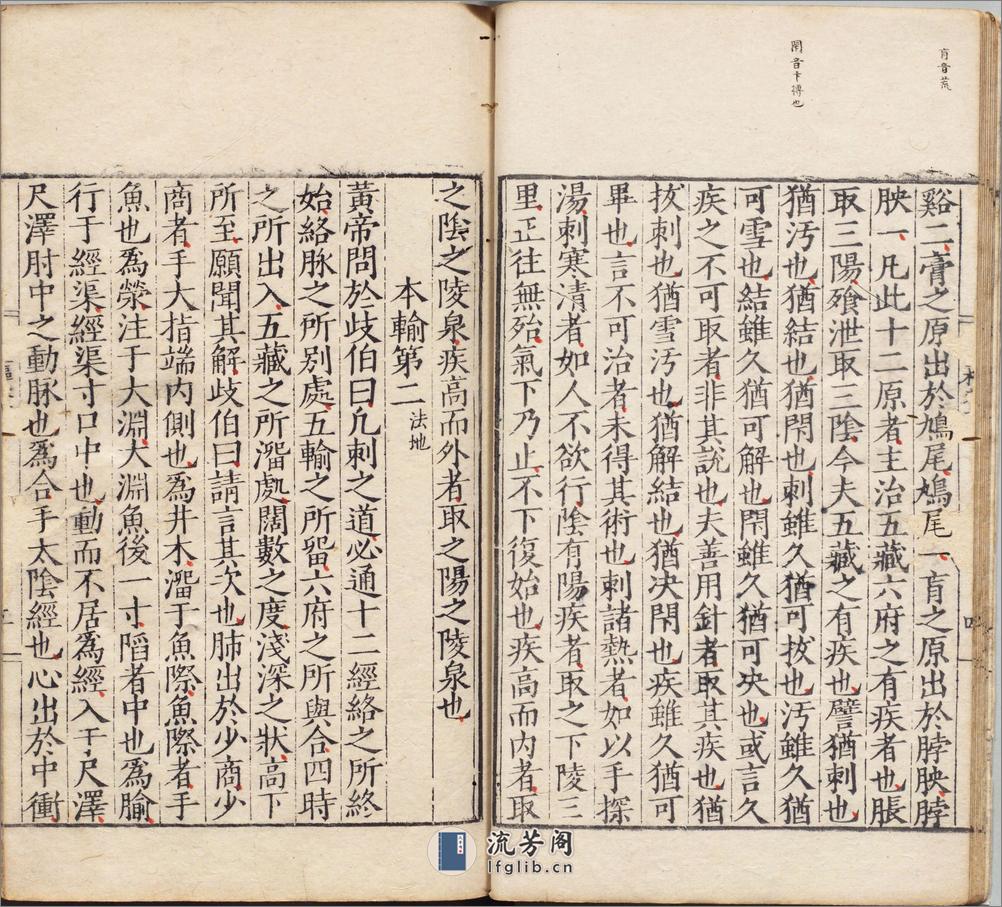 肓音荒
閇音卞摶也
谿二膏之原出於鳩尾鳩尾一肓之原出於脖胦脖
胦一凡此十二原者主治五藏六府之有疾者也脹
取三陽飱泄取三陰今夫五藏之有疾也譬猶刺也
猶汚也猶結也猶閇也刺雖久猶可拔也汚雖久猶
可雪也結雖久猶可解也閇雖久猶可决也或言久
疾之不可取者非其說也夫善用針者取其疾也猶
拔刺也猶雪汚也猶解結也猶决閇也疾雖久猶可
畢也言不可治者未得其術也刺諸熱者如以手探
湯刺寒清者如人不欲行陰有陽疾者取之下陵三
里正往無殆氣下乃止不下復始也疾高而内者取
之陰之陵泉疾高而外者取之陽之陵泉也
本輸第二 法地
黃帝問於歧伯曰凡刺之道必通十二經絡之所終
始絡脉之所別處五輸之所畱六府之所與合四時
之所出入五藏之所溜處闊數之度淺深之狀高下
所至願聞其解歧伯曰請言其次也肺出於少商少
商者手大指端内側也爲井木溜于魚際魚際者手
魚也爲滎注于大淵大淵魚後一寸陷者中也爲腧
行于經渠經渠寸口中也動而不居爲經入于尺澤
尺澤肘中之動脉也爲合手太陰經也心出於中衝
流芳阁
lfglib.cn